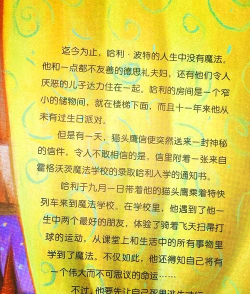 迄今为止，哈利·波特的人生中没有魔法。
他和一点都不友善的德思礼夫妇，还有他们令人
厌恶的儿子达力住在一起。哈利的房间是一个窄
小的储物间，就在楼梯下面，而且十一年来他从
未有过生日派对。
但是有一天，猫头鹰信使突然送来一封神秘
的信件，令人不敢相信的是，信里附着一张来自
霍格沃茨魔法学校的录取哈利入学的通知书。
哈利于九月一日带着他的猫头鹰乘着特快
列车来到魔法学校。在学校里，他遇到了他一
生中两个最好的朋友，体验了骑着飞天扫帚打
球的运动，从课堂上和生活中的所有事物里
学到了魔法。不仅如此，他还得知自己将有
一个伟大而不可思议的命运……
不过，他要先让自己死里逃生才行